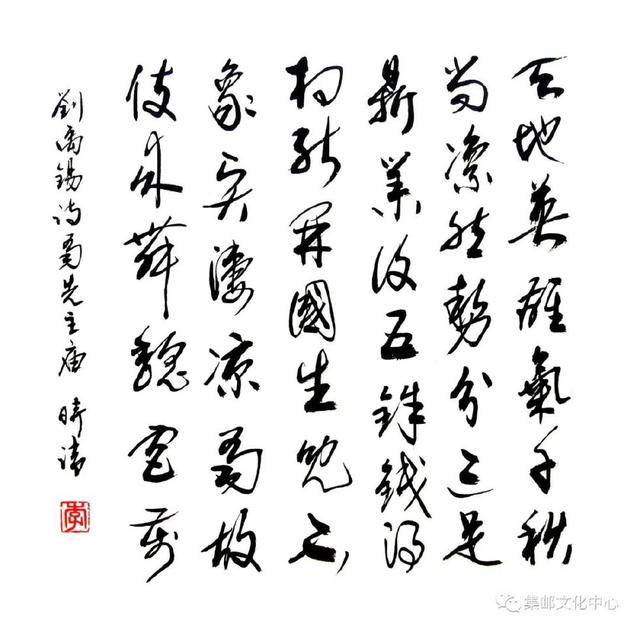 天地英雄氣千秋
尚凛然勢分三足
鼎業復五銖錢得
相能開國生兒不
象賢淒凉蜀故
伎来舞魏宫前
劉禹錫詩蜀先主庙 時
李
集邮文化中心